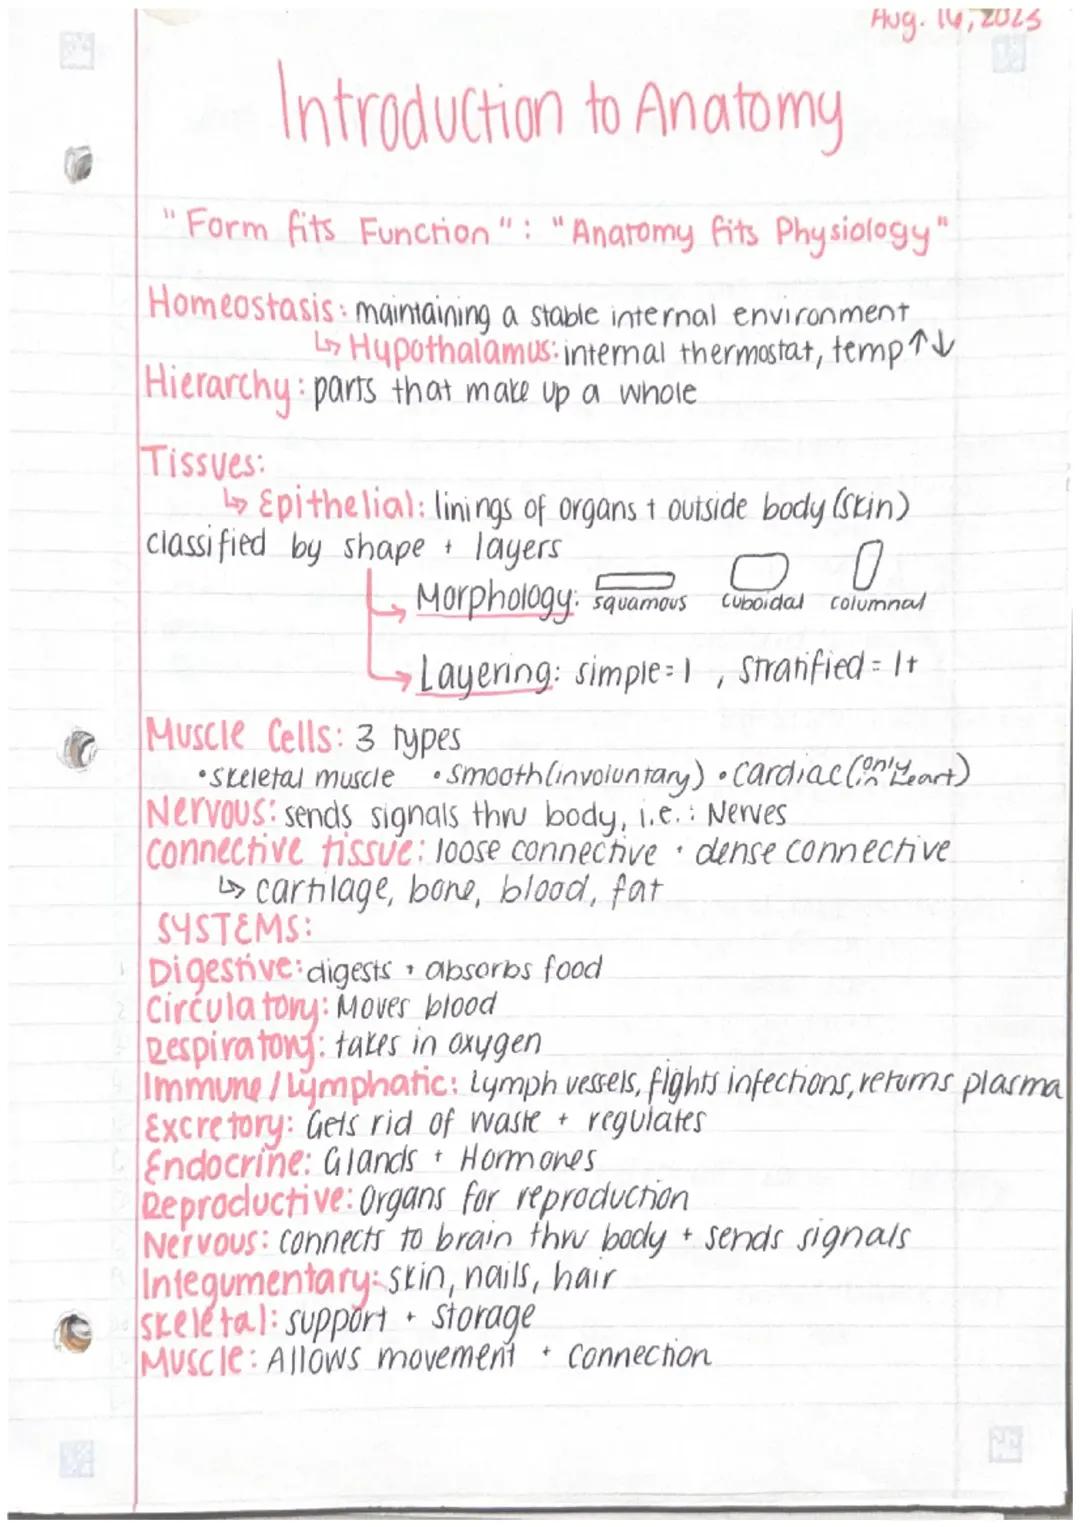 Aug. 16, 2023
Introduction to Anatomy
"Form fits Function": "Anatomy fits Physiology"
Homeostasis: maintaining a stable internal environment
↳ Hypothalamus: internal thermostat, temp ↑↓
Hierarchy: parts that make up a whole
Tissues:
↳ Epithelial: linings of organs + outside body (skin)
classified by shape + layers
Morphology: squamous cuboidal columnal
Layering: simple=1, stratified= 1+
Muscle Cells: 3 types
•skeletal muscle •smooth(involuntary) •cardiac (only in heart)
Nervous: sends signals thru body, i.e.: Nerves
Connective tissue: loose connective • dense connective
↳ cartilage, bone, blood, fat
SYSTEMS:
Digestive: digests + absorbs food
Circulatory: Moves blood
Respiratory: takes in oxygen
Immune/Lymphatic: Lymph vessels, fights infections, returns plasma
Excretory: Gets rid of waste + regulates
Endocrine: Glands + Hormones
Reproductive: Organs for reproduction
Nervous: connects to brain thru body + sends signals
Integumentary: skin, nails, hair
Skeletal: support + storage
Muscle: Allows movement + connection